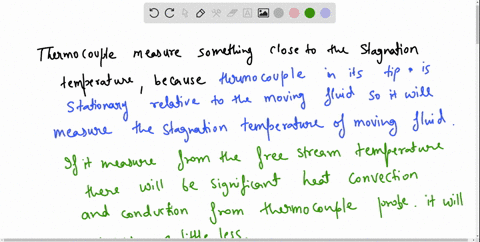 Thermocouple measure something close to the Stagnation
temperature, because thermocouple in its tip is
Stationary relative to the moving fluid so it will
measure the stagnation temperature of moving fluid.
If it measure from the free stream temperature
there will be significant heat convection
and conduction from thermocouple probe. it will
a little less.